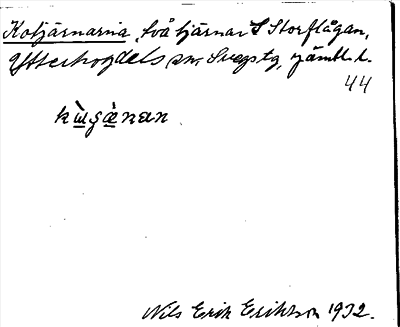 Kotjärnarna, två tjärnar S Storflågan,
Ytterhogdals sn, Svegs tg, Jämtl. l.
44
kùgǽnan
Nils Erik Eriksson 1932.